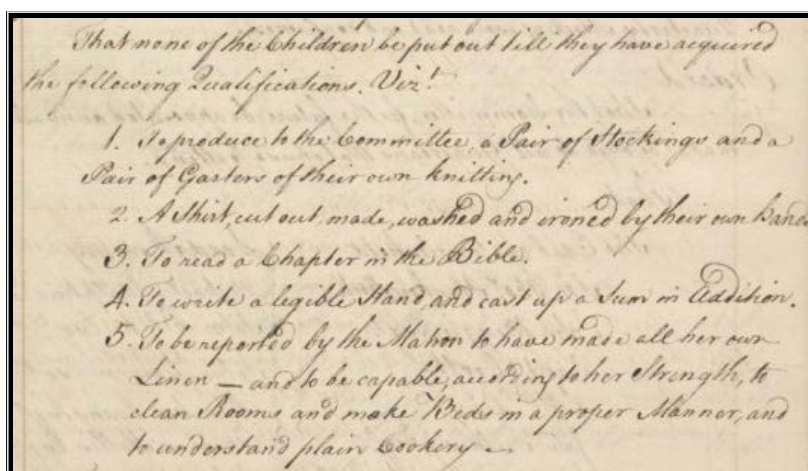 That none of the Children be put out till they have acquired
the following Qualifications. Vizt
1. To produce to the Committee, a Pair of Stockings and a
Pair of Garters of their own knitting.
2. A Shirt, cut out, made, washed and ironed by their own hands
3. To read a Chapter in the Bible.
4. To write a legible Hand, and cast up a Sum in Addition.
5. To be reported by the Matron to have made all her own
Linen — and to be capable, according to her Strength, to
clean Rooms and make Beds in a proper Manner, and
to understand plain Cookery —